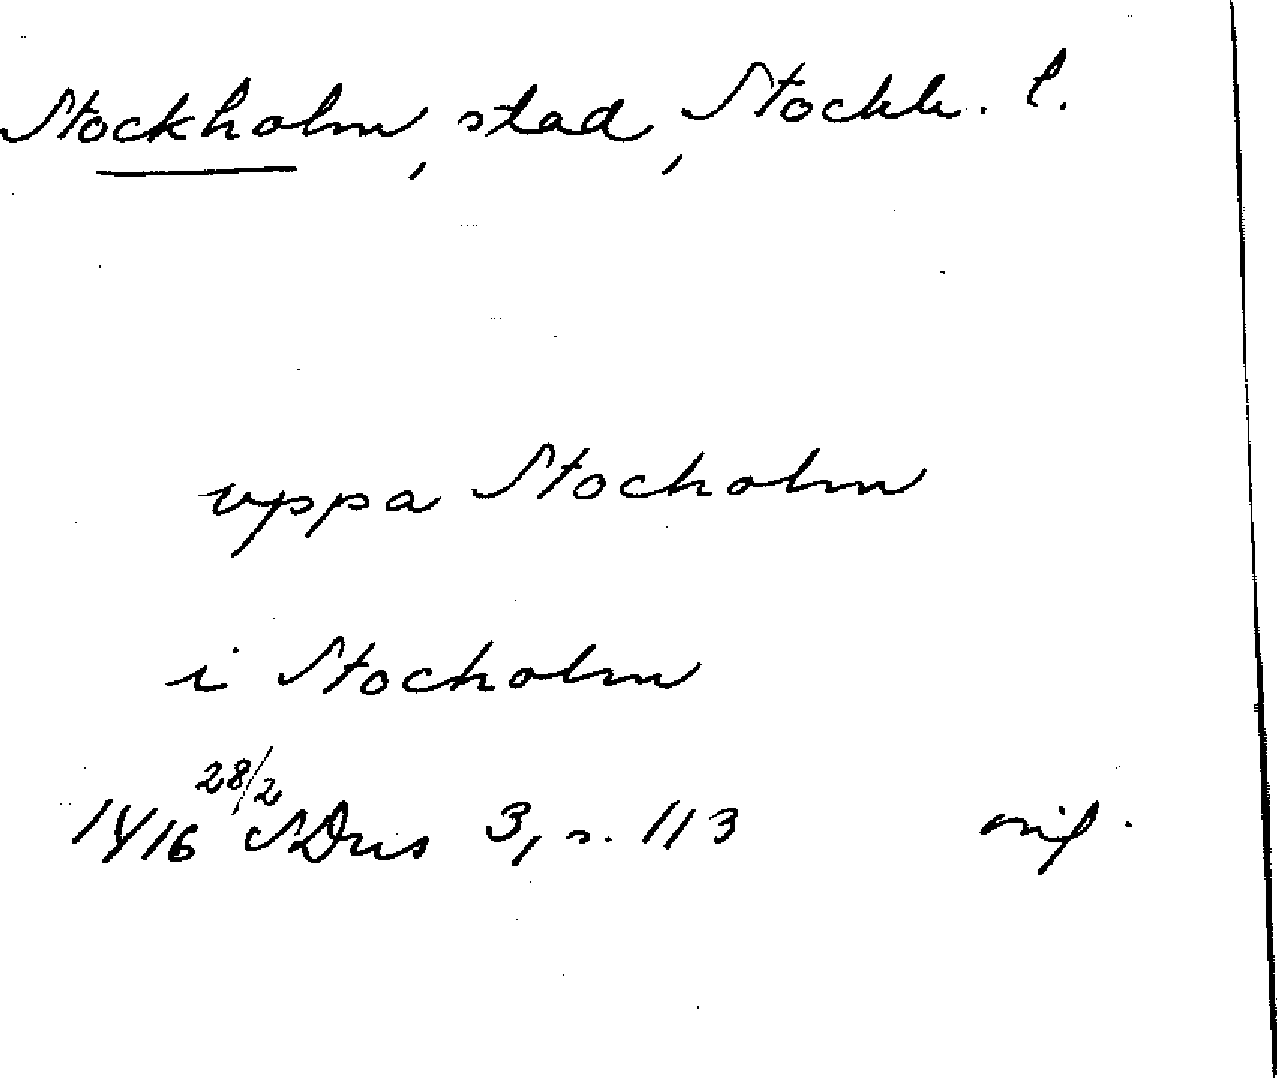 Stockholm, stad, Stockh. l.
uppa Stocholm
i Stocholm
1416 28/2 SDns 3, s. 113 orig.